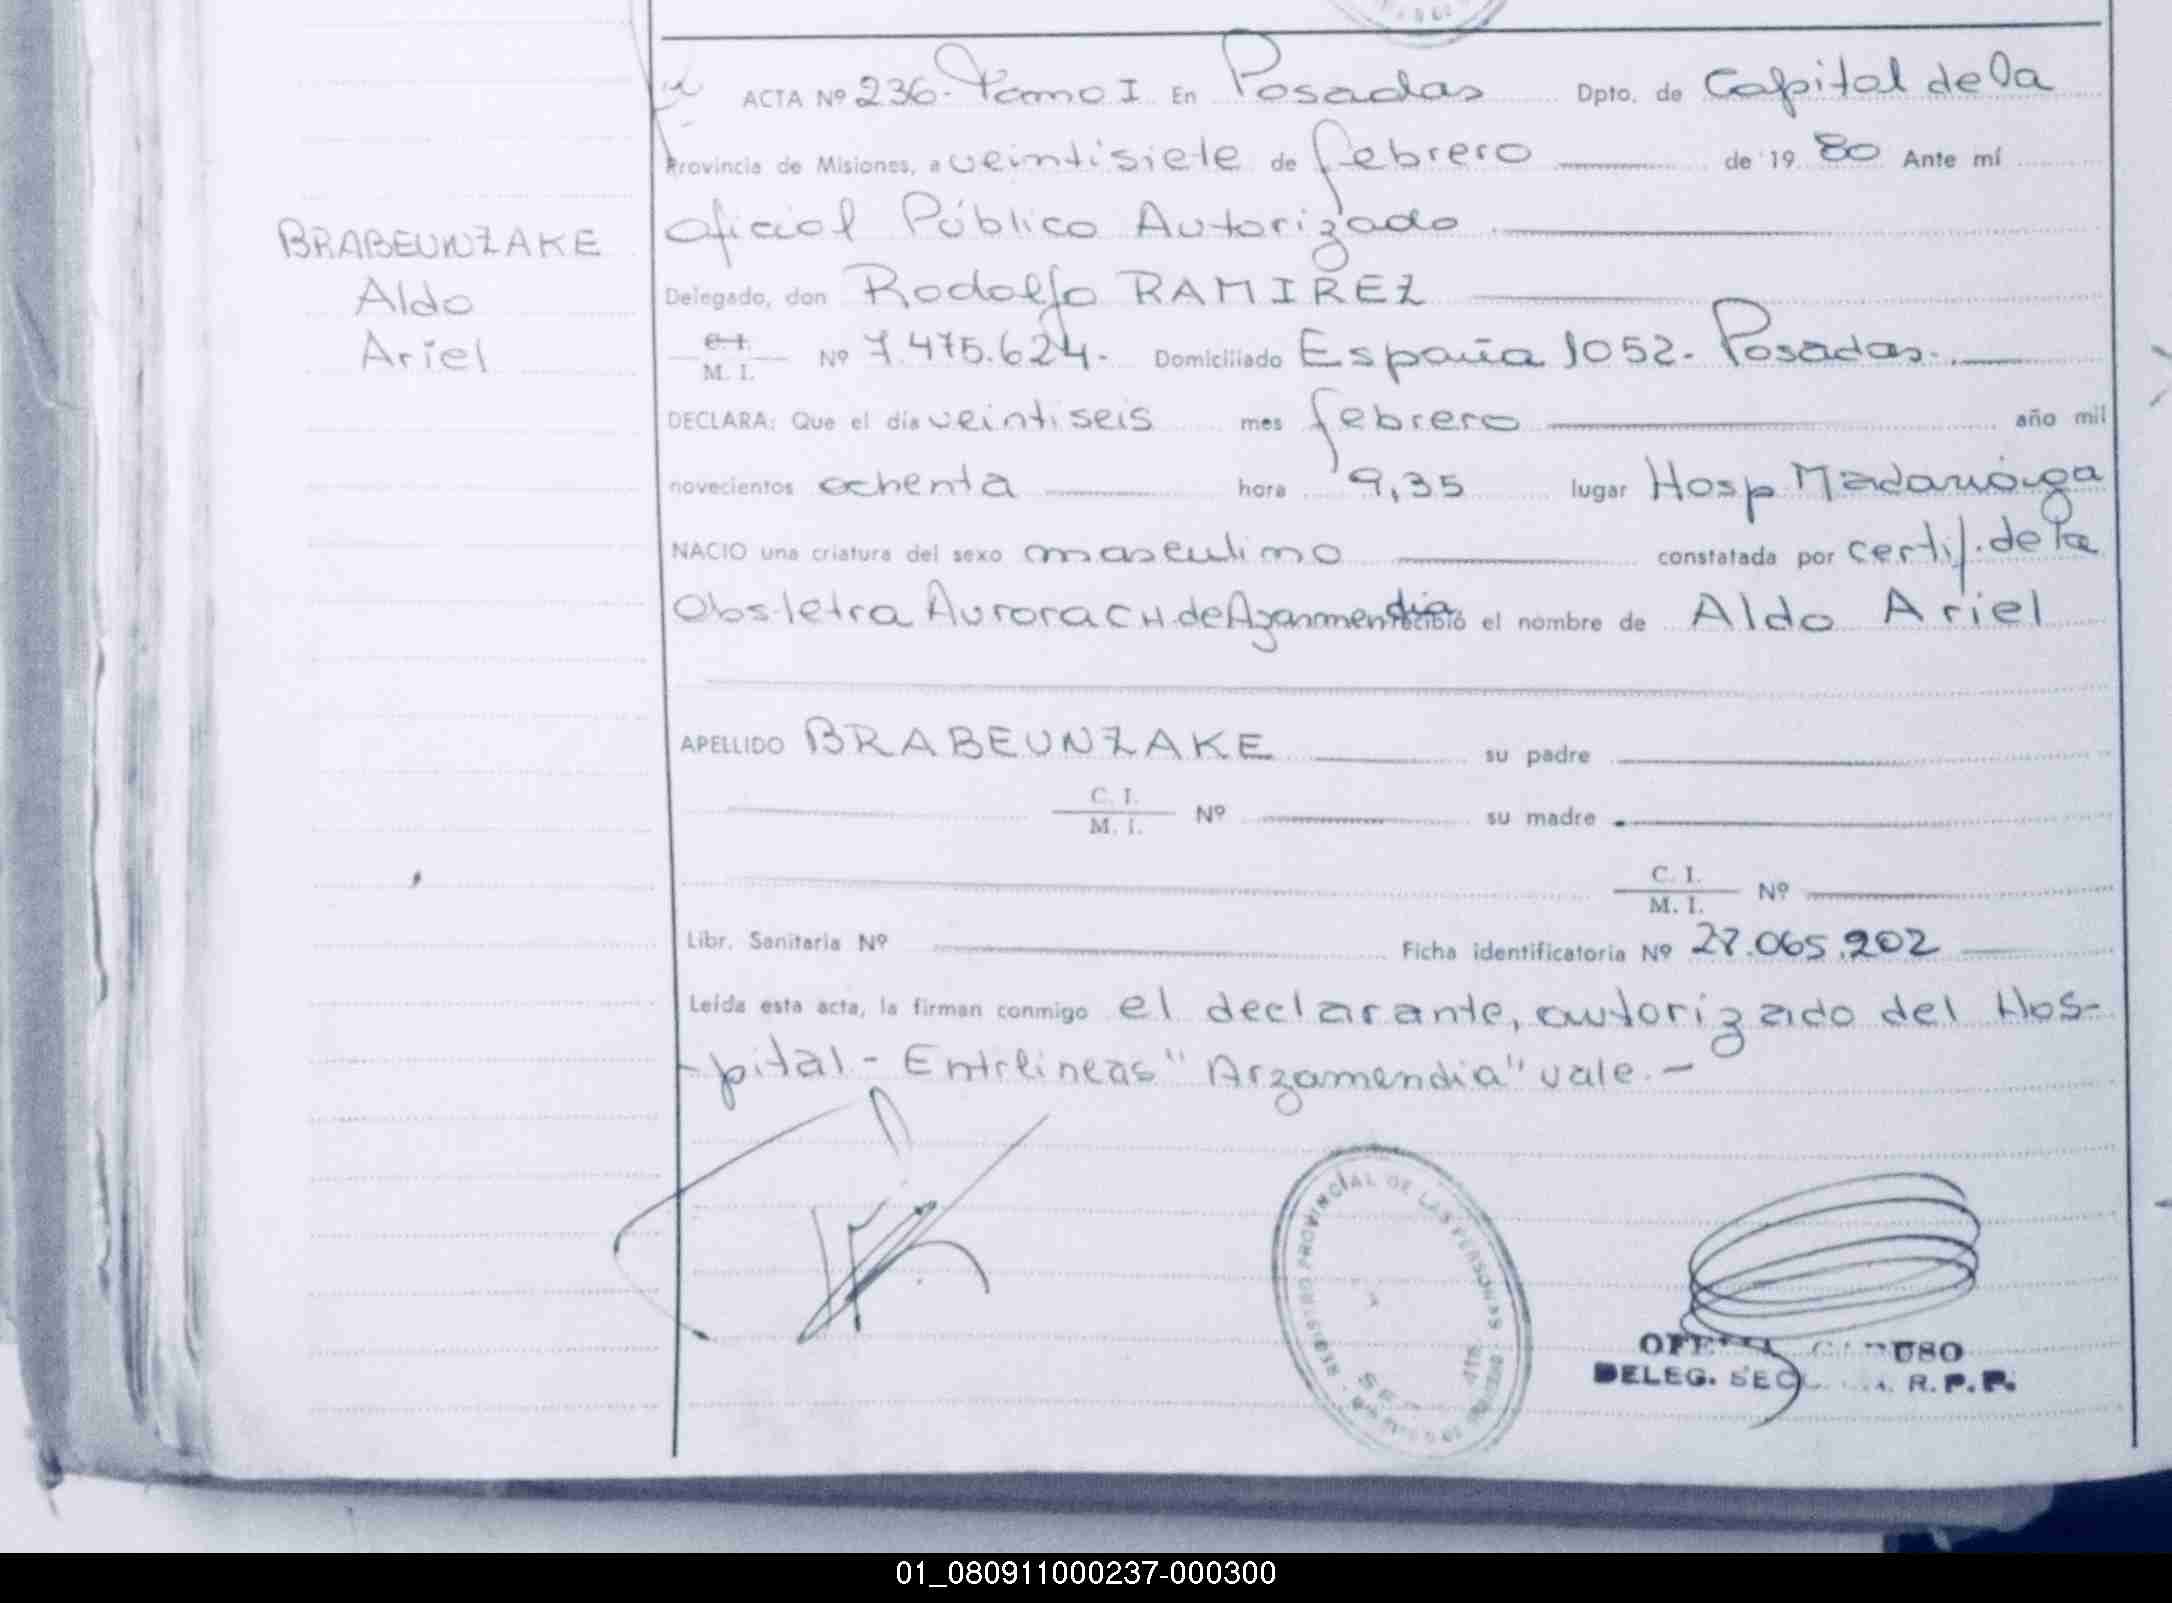 ACTA Nº 236. Tomo I En Posadas Dpto. de Capital de la
Provincia de Misiones, a veintisiete de febrero de 1980 Ante mí
Oficial Público Autorizado
Delegado, don Rodolfo RAMIREZ
C. I.
M. I. Nº 7.475.624. Domiciliado España 1052. Posadas.
DECLARA: Que el día veintiseis mes febrero año mil
novecientos ochenta hora 9,35 lugar Hosp Madariaga
NACIO una criatura del sexo masculino constatada por certif. de la
Obstetra Aurora CH. de el nombre de Aldo Ariel
APELLIDO BRABEUNZAKE su padre
C. I.
M. I. Nº su madre
C. I.
M. I. Nº
Libr. Sanitaria Nº Ficha identificatoria Nº 27.065.202
Leída esta acta, la firman conmigo el declarante, autorizado del Hos-
-pital - Entrelineas "Arzamendia" vale. -
BRABEUNZAKE
Aldo
Ariel
REGISTRO PROVINCIAL DE LAS PERSONAS
DELEG. R. P. P.
01_080911000237-000300